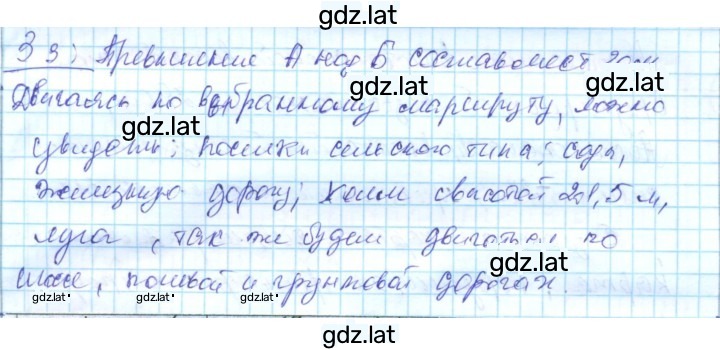 gdz.lat
З з; Превышение А над Б составляет
gdz.lat
Двигаясь по выбранному маршруту, можно
gdz.lat
gdz.lat
увидеть; поселки сельского типа; сады,
железную дорогу; холм с высотой 21,5 м,
gdz.lat
луга, так же будем двигаться по
gdz.lat
шоссе, полевой и грунтовой дорогах.
gdz.lat gdz.lat gdz.lat gdz.lat
gdz.lat